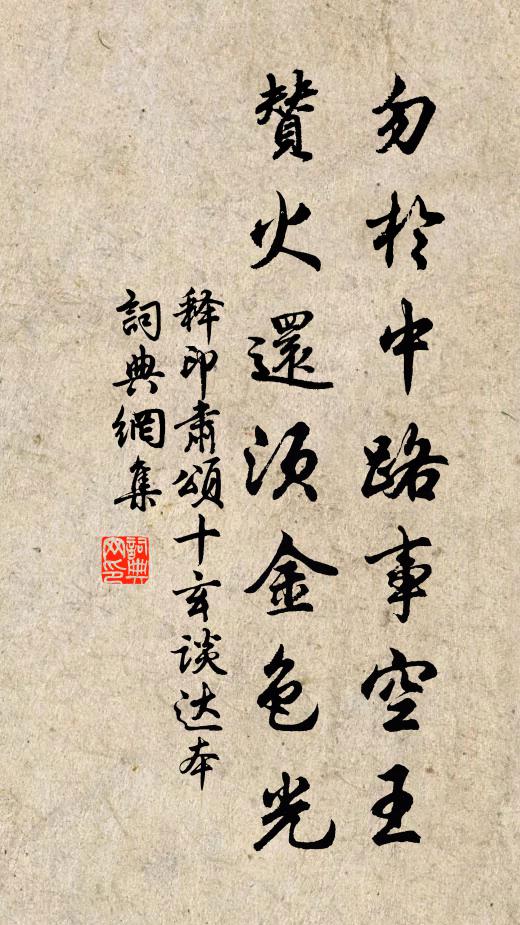 勿於中路事空王
賛火還須金色光
释印肃頌十玄談达本
詞典網集
詞典
网印